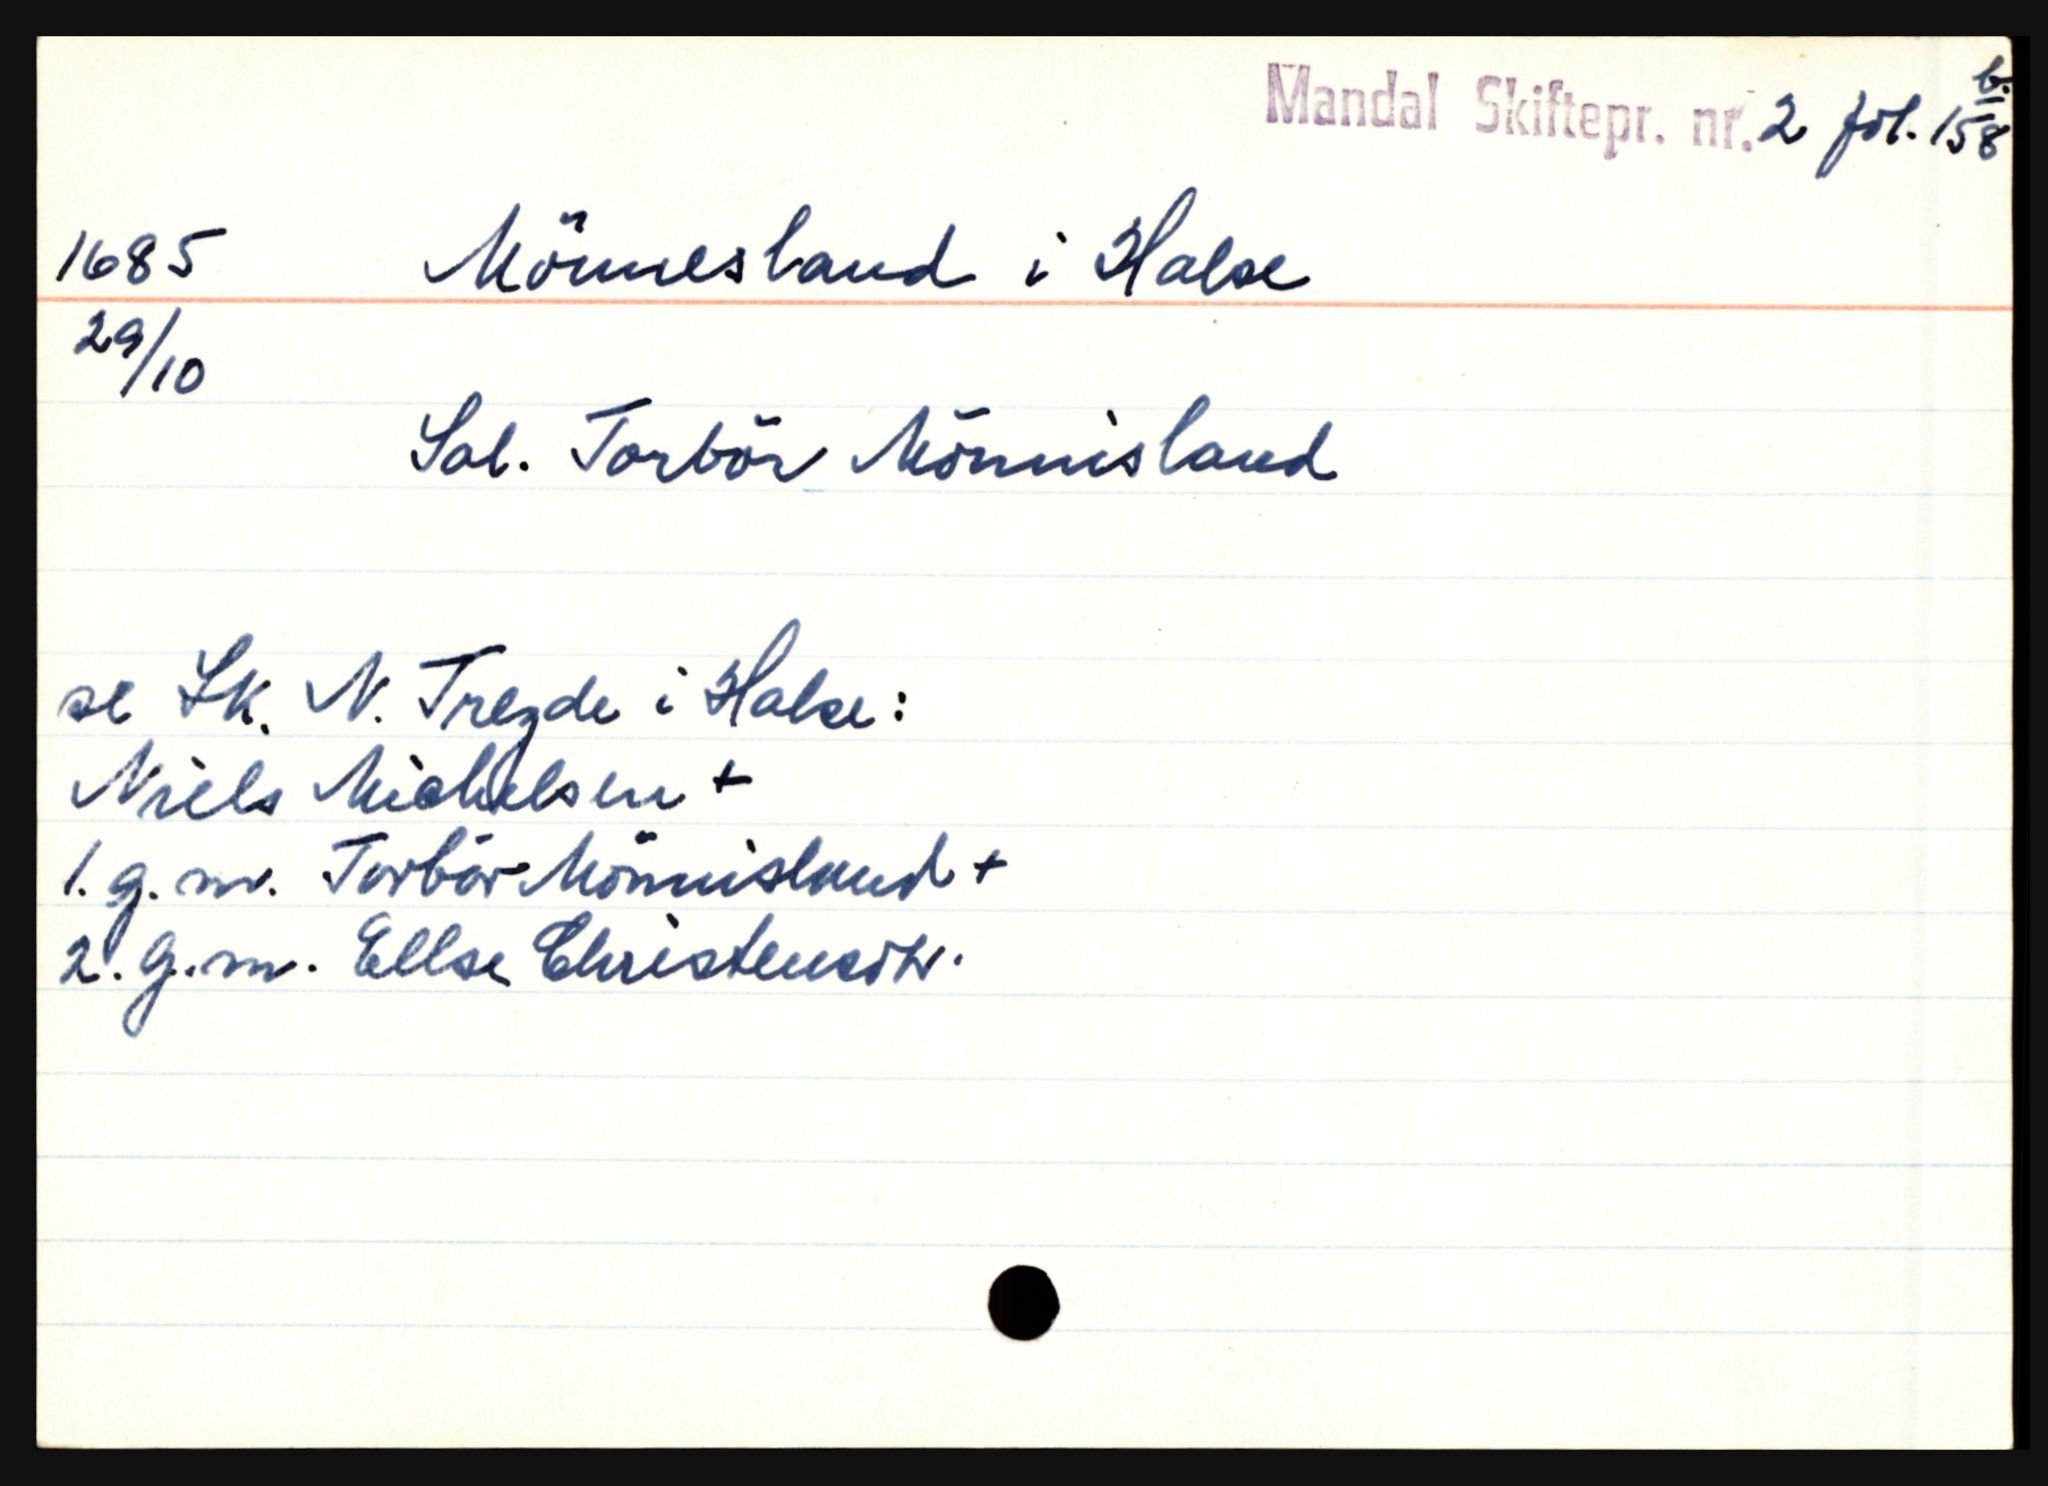 Mandal Skiftepr. nr. 2 fol. 158 b.
1685 Mönnesland i Halse
29/10
Sal. Torbör Mönnisland
se Sk. N. Tregde i Halse:
Niels Michelsen +
1. g. m. Torbör Mönnisland +
2. g. m. Ellse Christensdtr.